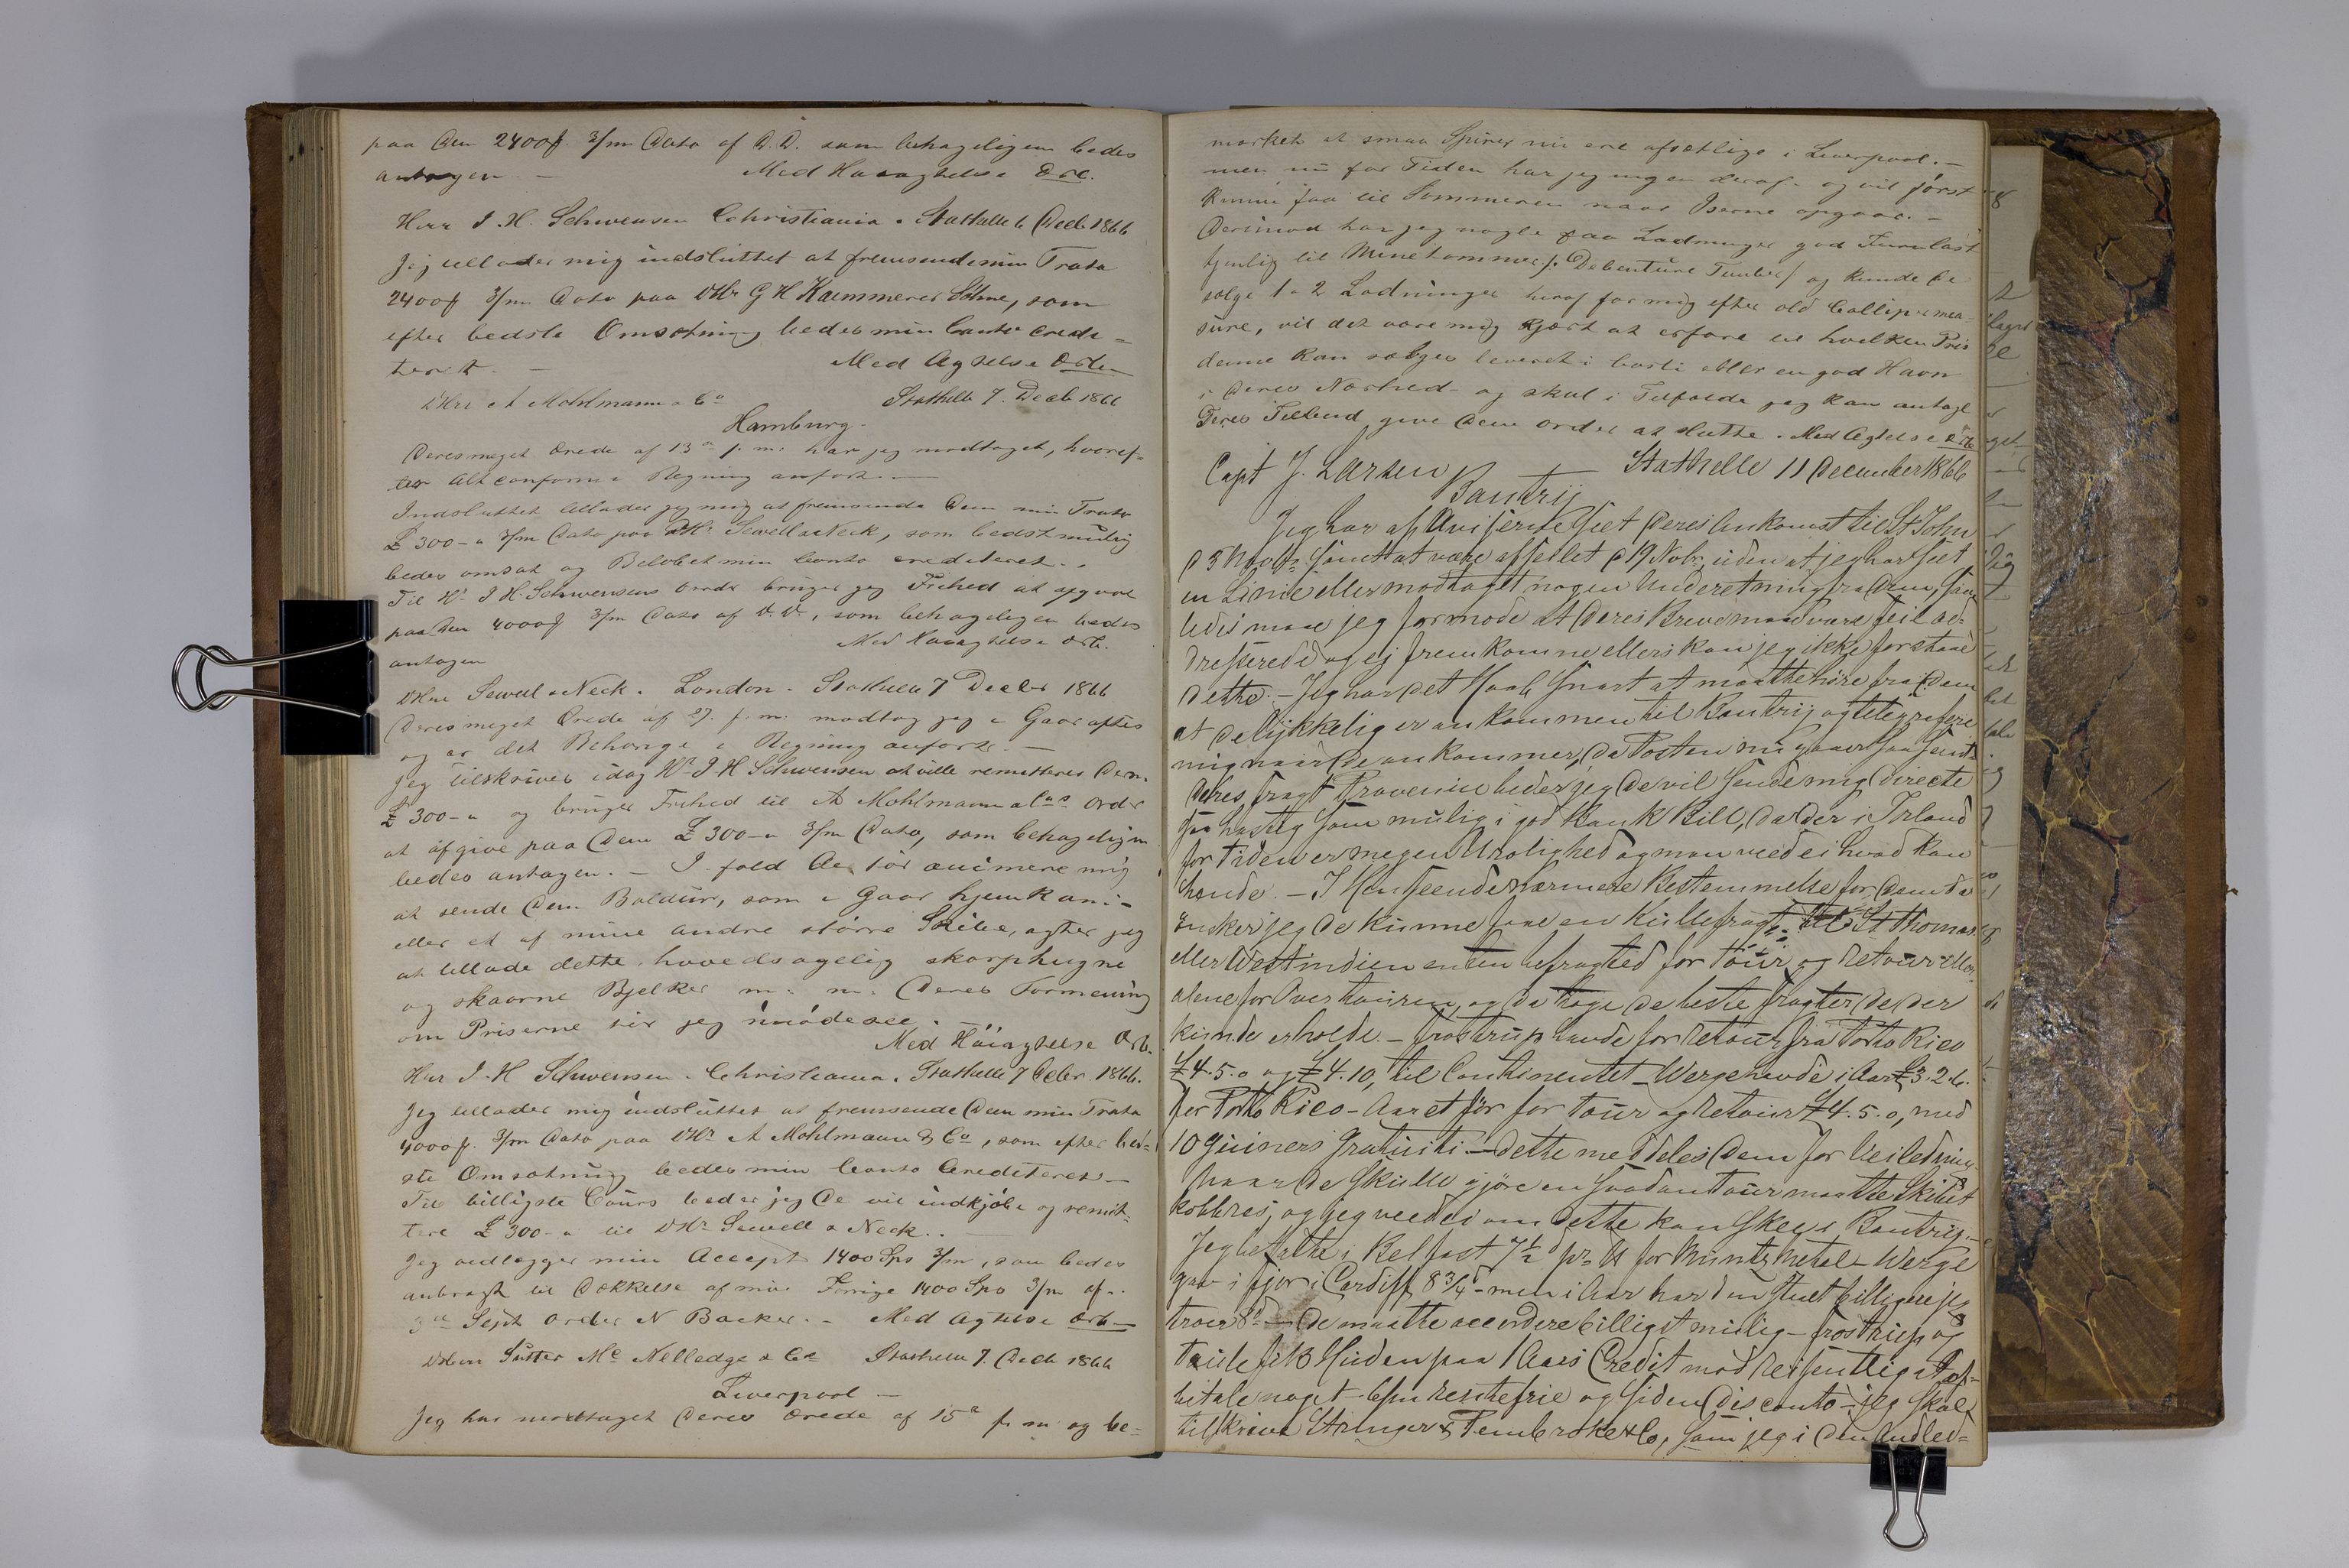 paa Dem 2400ƒ. 3/m Dato af D.D. som behageligen bedes
antagen. — Med Høiagtelse Erb.
Herr J. H. Schwensen Christiania. Stathelle 6 Decb 1866
Jeg tillader mig indsluttet at fremsende min Trata
2400ƒ 3/m Dato paa DHr G H Kaemmerer Söhne, som
efter bedste Omsætning bedes min Conto credi=
teret. — Med Agtelse Erb.
DHrr A Mohlmann & Co Stathelle 7. Decb 1866
Hamburg.
Deres meget ærede af 13de p. m. har jeg modtaget, hvoref=
ter Alt conforme Regning anført. —
Indsluttet tillader jeg mig at fremsende Dem min Trata
£ 300-„ 3/m Dato paa DHr Sewell & Neck, som bedst mulig
bedes omsat og Beløbet min Conto crediteret. .
Til Hr J H. Schwensens Ordre bruger jeg Frihed at afgive
paa Dem 4000ƒ 3/m Dato af D. D., som behageligen bedes
antagen Med Høiagtelse Erb.
DHrr Sewell & Neck. London. Stathelle 7 Decbr 1866
Deres meget ærede af 27. p. m. modtog jeg i Gaar aftes
og er det Behørige i Regning anført. —
Jeg tilskriver idag Hr J H Schwensen at ville remittere Dem
£ 300-„ og bruger Frihed til A Mohlmann & Co Ordr
at afgive paa Dem £ 300-„ 3/m Dato, som behageligen
bedes antagen. — I fald De tør animere mig
at sende Dem Baldur, som i Gaar hjemkom -
eller et af mine andre større Skibe, agter jeg
at tillade dette hovedsagelig skarphugne
og skaarne Bjelker m. m. Deres Formening
om Priserne tør jeg imødesee.
Med Høiagtelse Erb.
Herr J. H Schwensen. Christiania. Stathelle 7 Decbr. 1866.
Jeg tillader mig indsluttet at fremsende Dem min Trata
4000ƒ. 3/m Dato paa DHr A Mohlmann & Co, som efter bed=
ste Omsætning bedes min Conto Crediteret —
Til billigste Cours beder jeg De vil indkjøbe og remit=
tere £ 300-„ til DHr Sewell & Neck. .
Jeg vedlægger min Accept 1400 Spd 3/m, som bedes
anbragt til Dækkelse af min Forrige 1400 Spd 3/m af
3de Sept Ordre N Backer. — Med Agtelse Erb —
DHerrer Sutter Mc Nelledge & Co Stathelle 7. Decb 1866
Liverpool —
Jeg har modtaget Deres ærede af 15de p. m. og be=
mærket at smaa Spirer nu ere afsætlige i Liverpool. —
men nu for Tiden har jeg ingen deraf. og vil først
kunne faa til Sommeren naar Iserne opgaar. —
Derimod har jeg nogle faa Ladninger god Furulast
tjenlig til Minetømmer /: Debenture Timber / og kunde De
sælge 1 a 2 Ladninger heraf for mig efter old Calliper mea=
sure, vil det være mig kjært at erfare til hvilken Pris
denne kan sælges leveret i Garsti eller en god Havn
i Deres Nærhed - og skal i Tilfælde jeg kan antage
Deres Tilbud give Dem Order at slutte. Med Agtelse Erb
Capt J. Larsen — Stathelle 11 December 1866
Bantrij
Jeg har af Aviserne seet Deres Ankomst til St John
D 3 Novbr samt at være afseilet D 19 Novbr, uden at jeg har seet
en Linie eller modtaget nogen Underretning fra Dem, saa
ledes maae jeg formode at Deres Breve maa være feil ad=
dresserede og ej fremkomne ellers kan jeg ikke forstaae
dette. — Jeg har det Haab snart at maatte høre fra Dem
at De lykkelig er ankommen til Bantrij og telegrafere
mig naar De ankommer, da Posten nu gaaer saa sent
Deres fragt Provenue beder jeg De vil sende mig directe
saa hastig som mulig i god Bank Bill, da der i Irland
for Tiden er megen Urolighed og man veed ei hvad kan
hænde. — I Henseende nærmere Bestemmelse for Dem da
ønsker jeg De kunne faae en Kullefragt til St Thomas
eller Westindien enten befragted for Tour og Retour eller
alene for Overtouren, og da tage de beste fragter De der
kunde erholde. — Frostrup havde for Retour fra Porto Rico
£ 4. 5. 0 og £ 4. 10, til Continentet - Werge havde i Aar £ 3. 2. 6.
for Porto Rico - Aaret før for Tour og Retour £ 4. 5. 0, med
10 guiners Gratuiti — dette meddeles Dem for Veiledning
Naar De skulle gjøre en saadan Tour maatte Skibet
kobbres, og jeg veed ei om dette kan skee i Bantrij. —
Jeg betalte i Belfast 7½d pr ℔ for Muntz Metal - Werge
gav i fjor i Cardiff 8¾d - men i Aar har den staaet billigere jeg
troer 8d — De maatte accordere billigst mulig - Frostrup og
fik Huden paa 1 Aars Credit mod Leilighedig at af=
betale noget 6m Rentefrie og siden Disconto - jeg skal
tilskrive Stringer & Pembroke & Co, som jeg i den Anled=